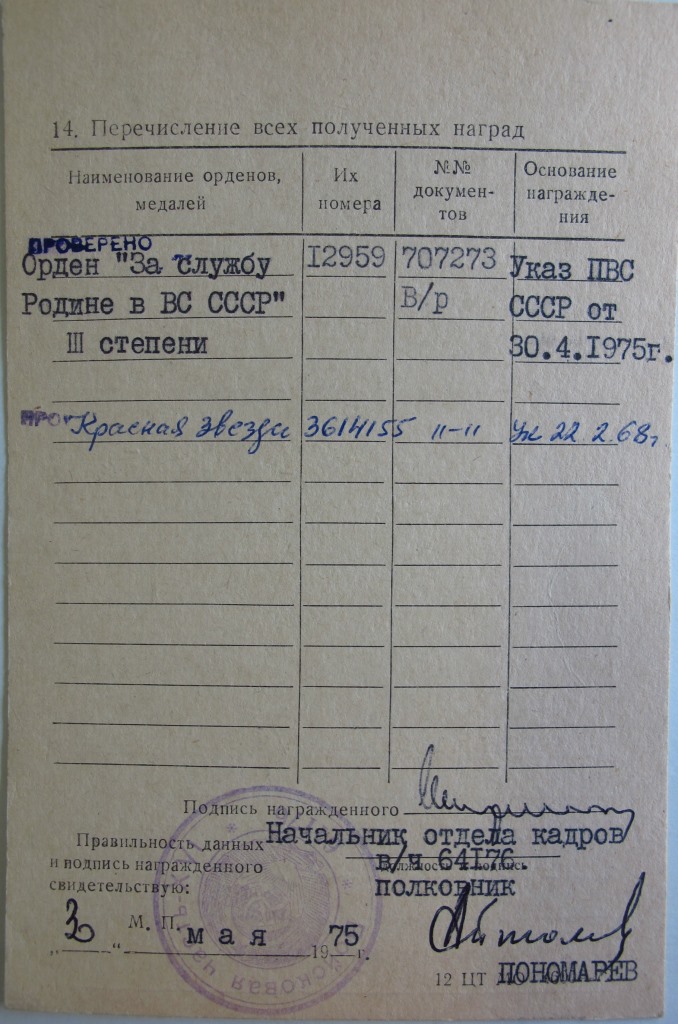 14. Перечисление всех полученных наград
Наименование орденов, медалей
Их номера
№№ докумен-тов
Основание награжде-ния
ПРОВЕРЕНО
Орден "За службу 12959 707273 Указ ПВС
Родине в ВС СССР" В/р СССР от
III степени 30.4.1975г.
ПРО "Красная Звезда 3614155 "-" Ук 22.2.68г
Подпись награжденного
Правильность данных Начальник отдела кадров
и подпись награжденного в/ч 64176.
свидетельствую: полковник
должность и подпись
М. П.
„3“ мая 1975 г.
12 ЦТ ПОНОМАРЕВ
Войсковая часть